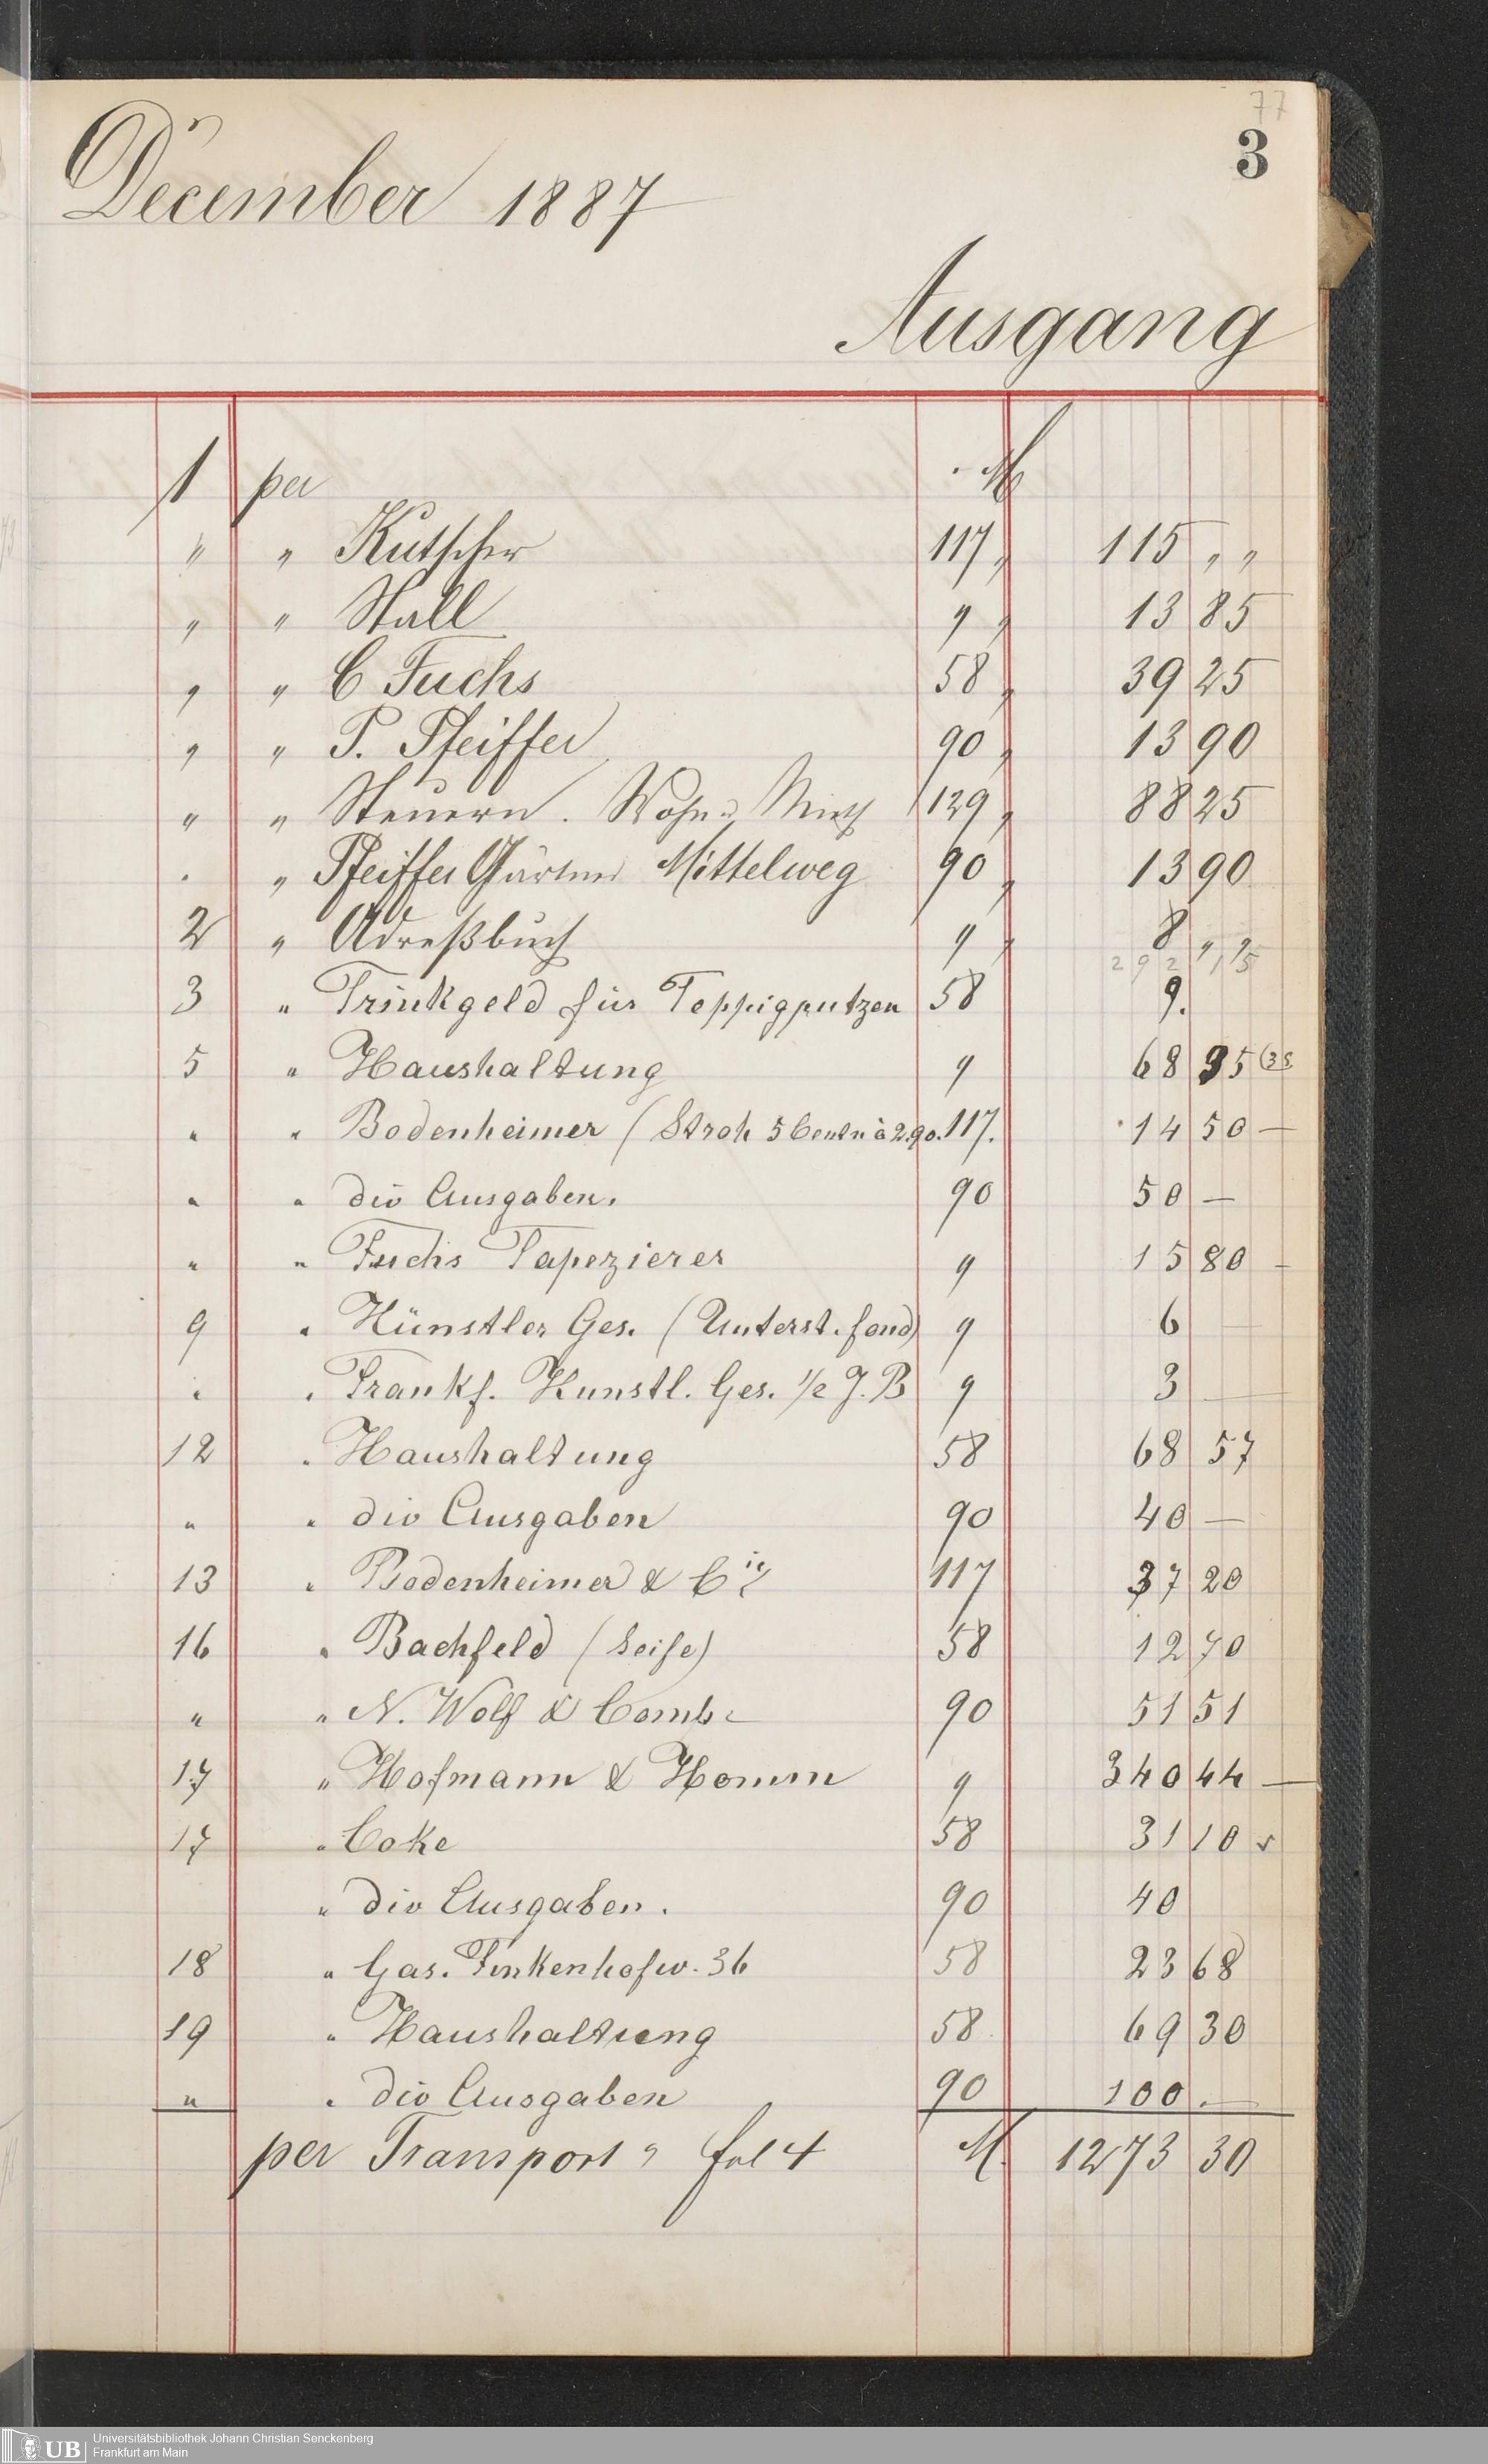 77
3
December 1887
Ausgang
1 per M
" " Kutscher 117 " 115 " "
" " Stall " " 13 85
" " C Fuchs 58 " 39 25
" " P. Pfeiffer 90 " 13 90
" " Steuern. Wohn u Mieth 129 " 88 25
. " Pfeiffer Gärtner Mittelweg 90 " 13 90
2 " Adreßbuch " " 8 " "
292 15
3 " Trinkgeld für Teppigputzen 58 9.
5 " Haushaltung " 68 35 (35
" " Bodenheimer (Stroh 5 Centn à 2.90. 117. 14 50 —
" " div Ausgaben. 90 50 —
" " Fuchs Tapezierer " 15 80 -
9 " Künstler Ges. (Unterst. fond) " 6 —
" " Frankf. Kunstl. Ges. 1/2 J. B " 3 —
12 " Haushaltung 58 68 57
" " div Ausgaben 90 40 —
13 " Bodenheimer & Cie 117 37 20
16 " Bachfeld (Seife) 58 12 70
" " N. Wolf & Comb. 90 51 51
17 " Hofmann & Homm " 340 44 —
17 " Coke 58 31 10
" div Ausgaben. 90 40
18 " Gas. Finkenhofw. 36 58 23 68
19 " Haushaltung 58. 69 30
" " div Ausgaben 90 100. —
per Transport " fol 4 M. 1273 30
UB Universitätsbibliothek Johann Christian Senckenberg
Frankfurt am Main